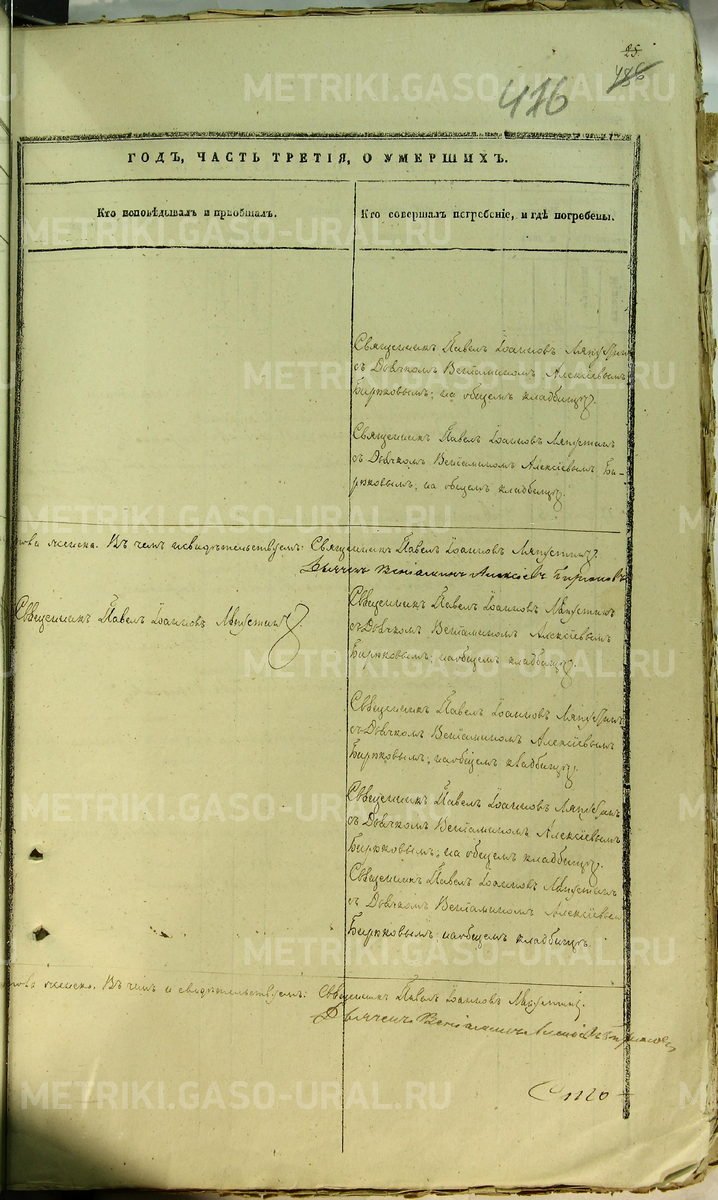 25
486
416
ГОДЪ, ЧАСТЬ ТРЕТІЯ, О УМЕРШИХЪ.
Кто исповѣдывалъ и пріобщалъ.
Кто совершалъ погребеніе, и гдѣ погребены.
Священникъ Павелъ Іоанновъ Ляпустинъ
съ Дьячкомъ Веніаминомъ Алексіевымъ
Бирюковымъ; на общемъ кладбищѣ.
Священникъ Павелъ Іоанновъ Ляпустинъ
съ Дьячкомъ Веніаминомъ Алексіевымъ Би-
рюковымъ; на общемъ кладбищѣ.
Въ чемъ и свидѣтельствуемъ: Священникъ Павелъ Іоанновъ Ляпустинъ
Дьячекъ Веніаминъ Алексіевъ Бирюковъ
Священникъ Павелъ Іоанновъ Ляпустинъ
Священникъ Павелъ Іоанновъ Ляпустинъ
съ Дьячкомъ Веніаминомъ Алексіевымъ
Бирюковымъ; на общемъ кладбищѣ.
Священникъ Павелъ Іоанновъ Ляпустинъ
съ Дьячкомъ Веніаминомъ Алексіевымъ
Бирюковымъ; на общемъ кладбищѣ.
Священникъ Павелъ Іоанновъ Ляпустинъ
съ Дьячкомъ Веніаминомъ Алексіевымъ
Бирюковымъ; на общемъ кладбищѣ.
Священникъ Павелъ Іоанновъ Ляпустинъ
съ Дьячкомъ Веніаминомъ Алексіевымъ
Бирюковымъ; на общемъ кладбищѣ.
Въ чемъ и свидѣтельствуемъ: Священникъ Павелъ Іоанновъ Ляпустинъ
Дьячекъ Веніаминъ Алексіевъ Бирюковъ
METRIKI.GASO-URAL.RU